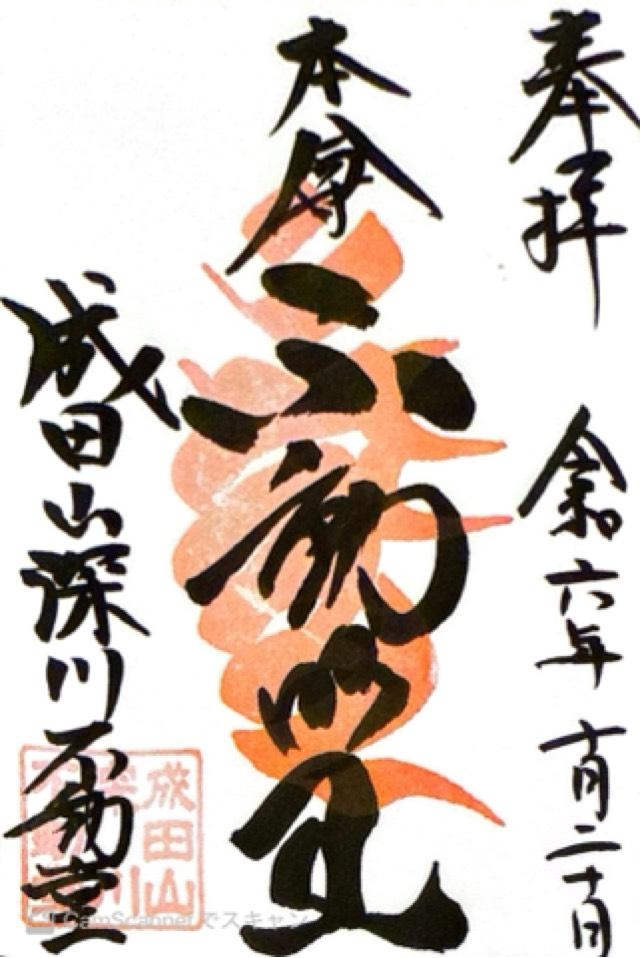 奉拝
令和六年
十月二十日
本尊
不動明王
成田山深川不動堂
成田山
CamScannerでスキャン